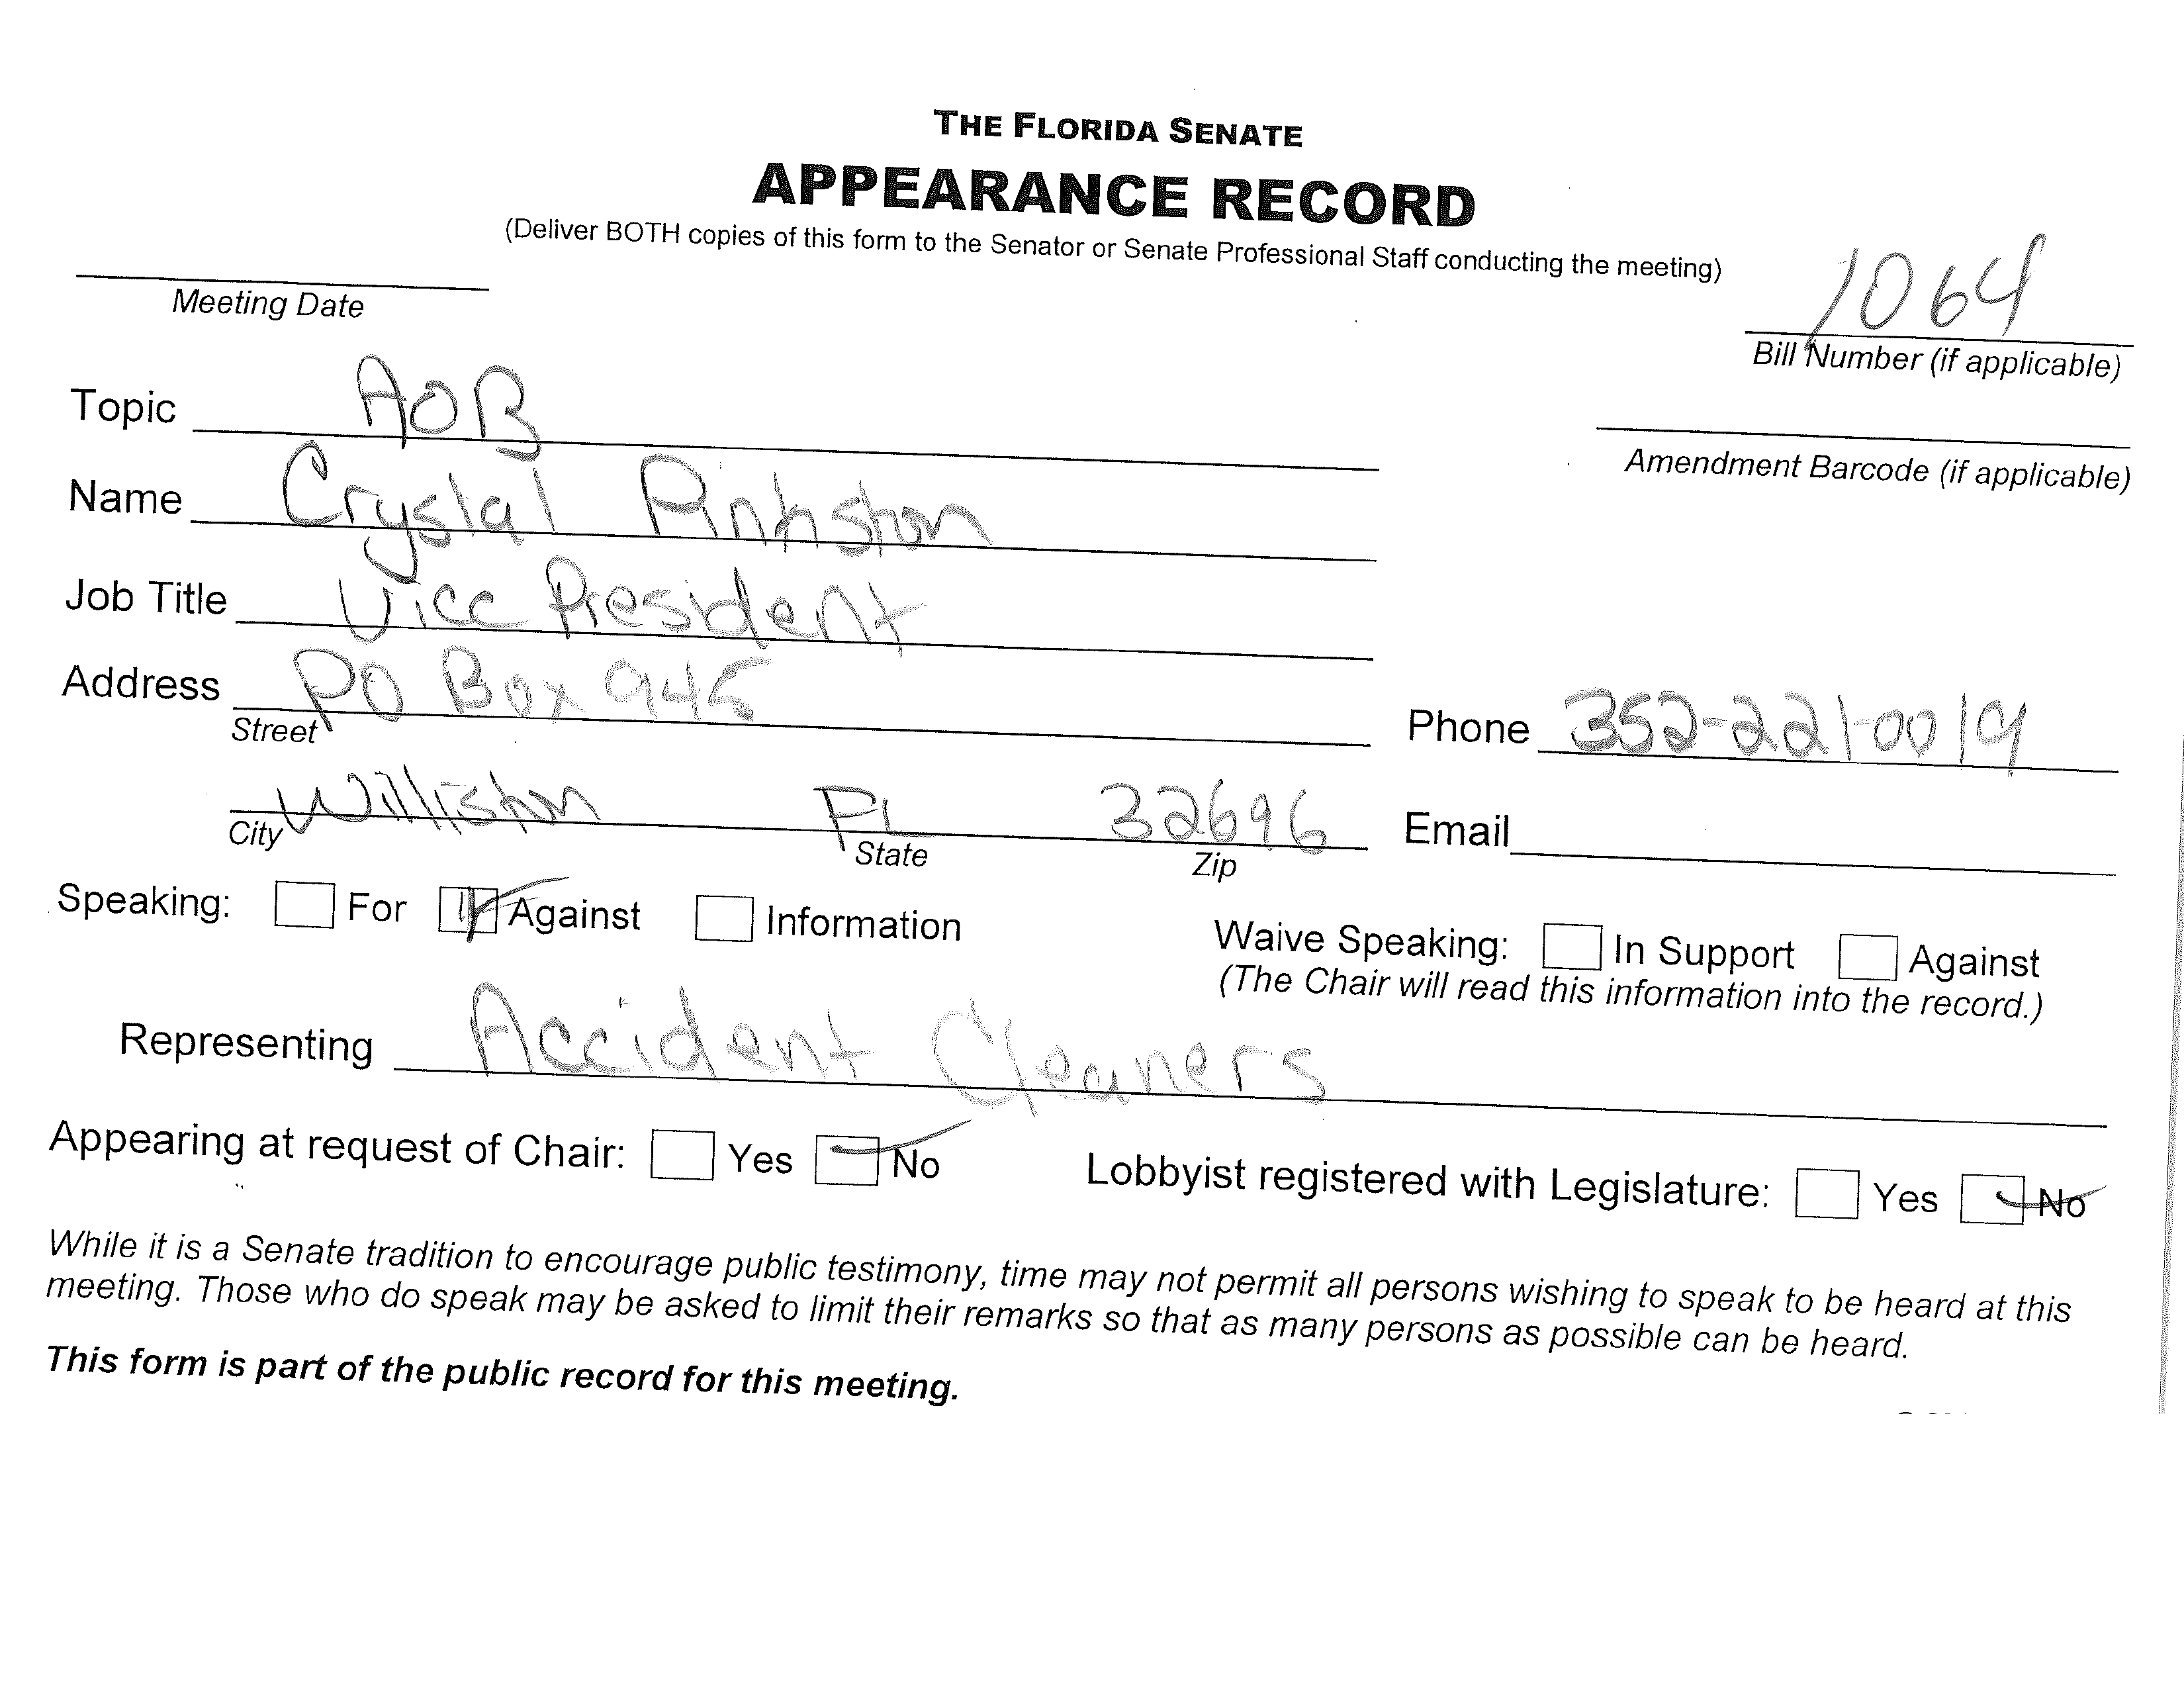 THE FLORIDA SENATE
APPEARANCE RECORD
(Deliver BOTH copies of this form to the Senator or Senate Professional Staff conducting the meeting)
1064
Meeting Date
Bill Number (if applicable)
Topic AOB
Amendment Barcode (if applicable)
Name Crystal Pinkston
Job Title Vice President
Address PO Box 945
Street
Phone 352-221-0019
Williston FL 32696
City State Zip
Email
Speaking: For Against Information
Waive Speaking: In Support Against
(The Chair will read this information into the record.)
Representing Accident Cleaners
Appearing at request of Chair: Yes No
Lobbyist registered with Legislature: Yes No
While it is a Senate tradition to encourage public testimony, time may not permit all persons wishing to speak to be heard at this
meeting. Those who do speak may be asked to limit their remarks so that as many persons as possible can be heard.
This form is part of the public record for this meeting.